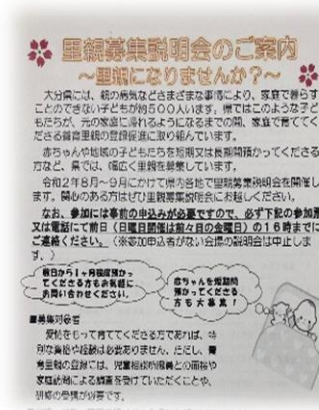 里親募集説明会のご案内
~里親になりませんか?~
大分県には、親の病気などさまざまな事情により、家庭で暮らす
ことのできない子どもが約500人います。県ではこのような子ど
もたちが、元の家庭に帰れるようになるまでの間、家庭で育ててく
ださる養育里親の登録促進に取り組んでいます。
赤ちゃんや地域の子どもたちを短期又は長期間預かってくださる
方など、県では、幅広く里親を募集しています。
令和2年8月~9月にかけて県内各地で里親募集説明会を開催し
ます。関心のある方はぜひ里親募集説明会にお越しください。
なお、参加には事前の申込みが必要ですので、必ず下記の参加
又は電話にて前日(日曜日開催は前々日の金曜日)の16時までに
ご連絡ください。(※参加申込者がない会場の説明会は中止しま
す。)
数日から1ヶ月程度預かっ
てくださる方もお気軽に
お問い合わせください。
赤ちゃんを短期間
預かってくださる
方も大募集!
■募集対象者
愛情をもって育ててくださる方であれば、特
別な資格や経験は必要ありません。ただし、養
育里親の登録では、児童相談所職員との面接や
家庭訪問による調査を受けていただくことや、
研修の受講が必要です。